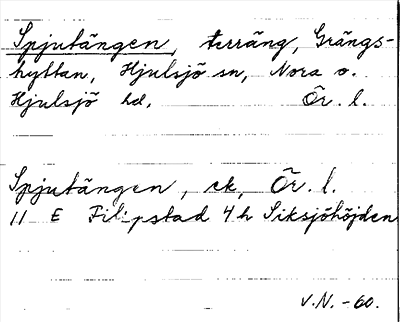 Spjutängen, terräng, Grängs-
hyttan, Hjulsjö sn, Nora o.
Hjulsjö hd. Ör. l.
Spjutängen, ek, Ör. l.
11 E Filipstad 4h Siksjöhöjden
V.N. -60.